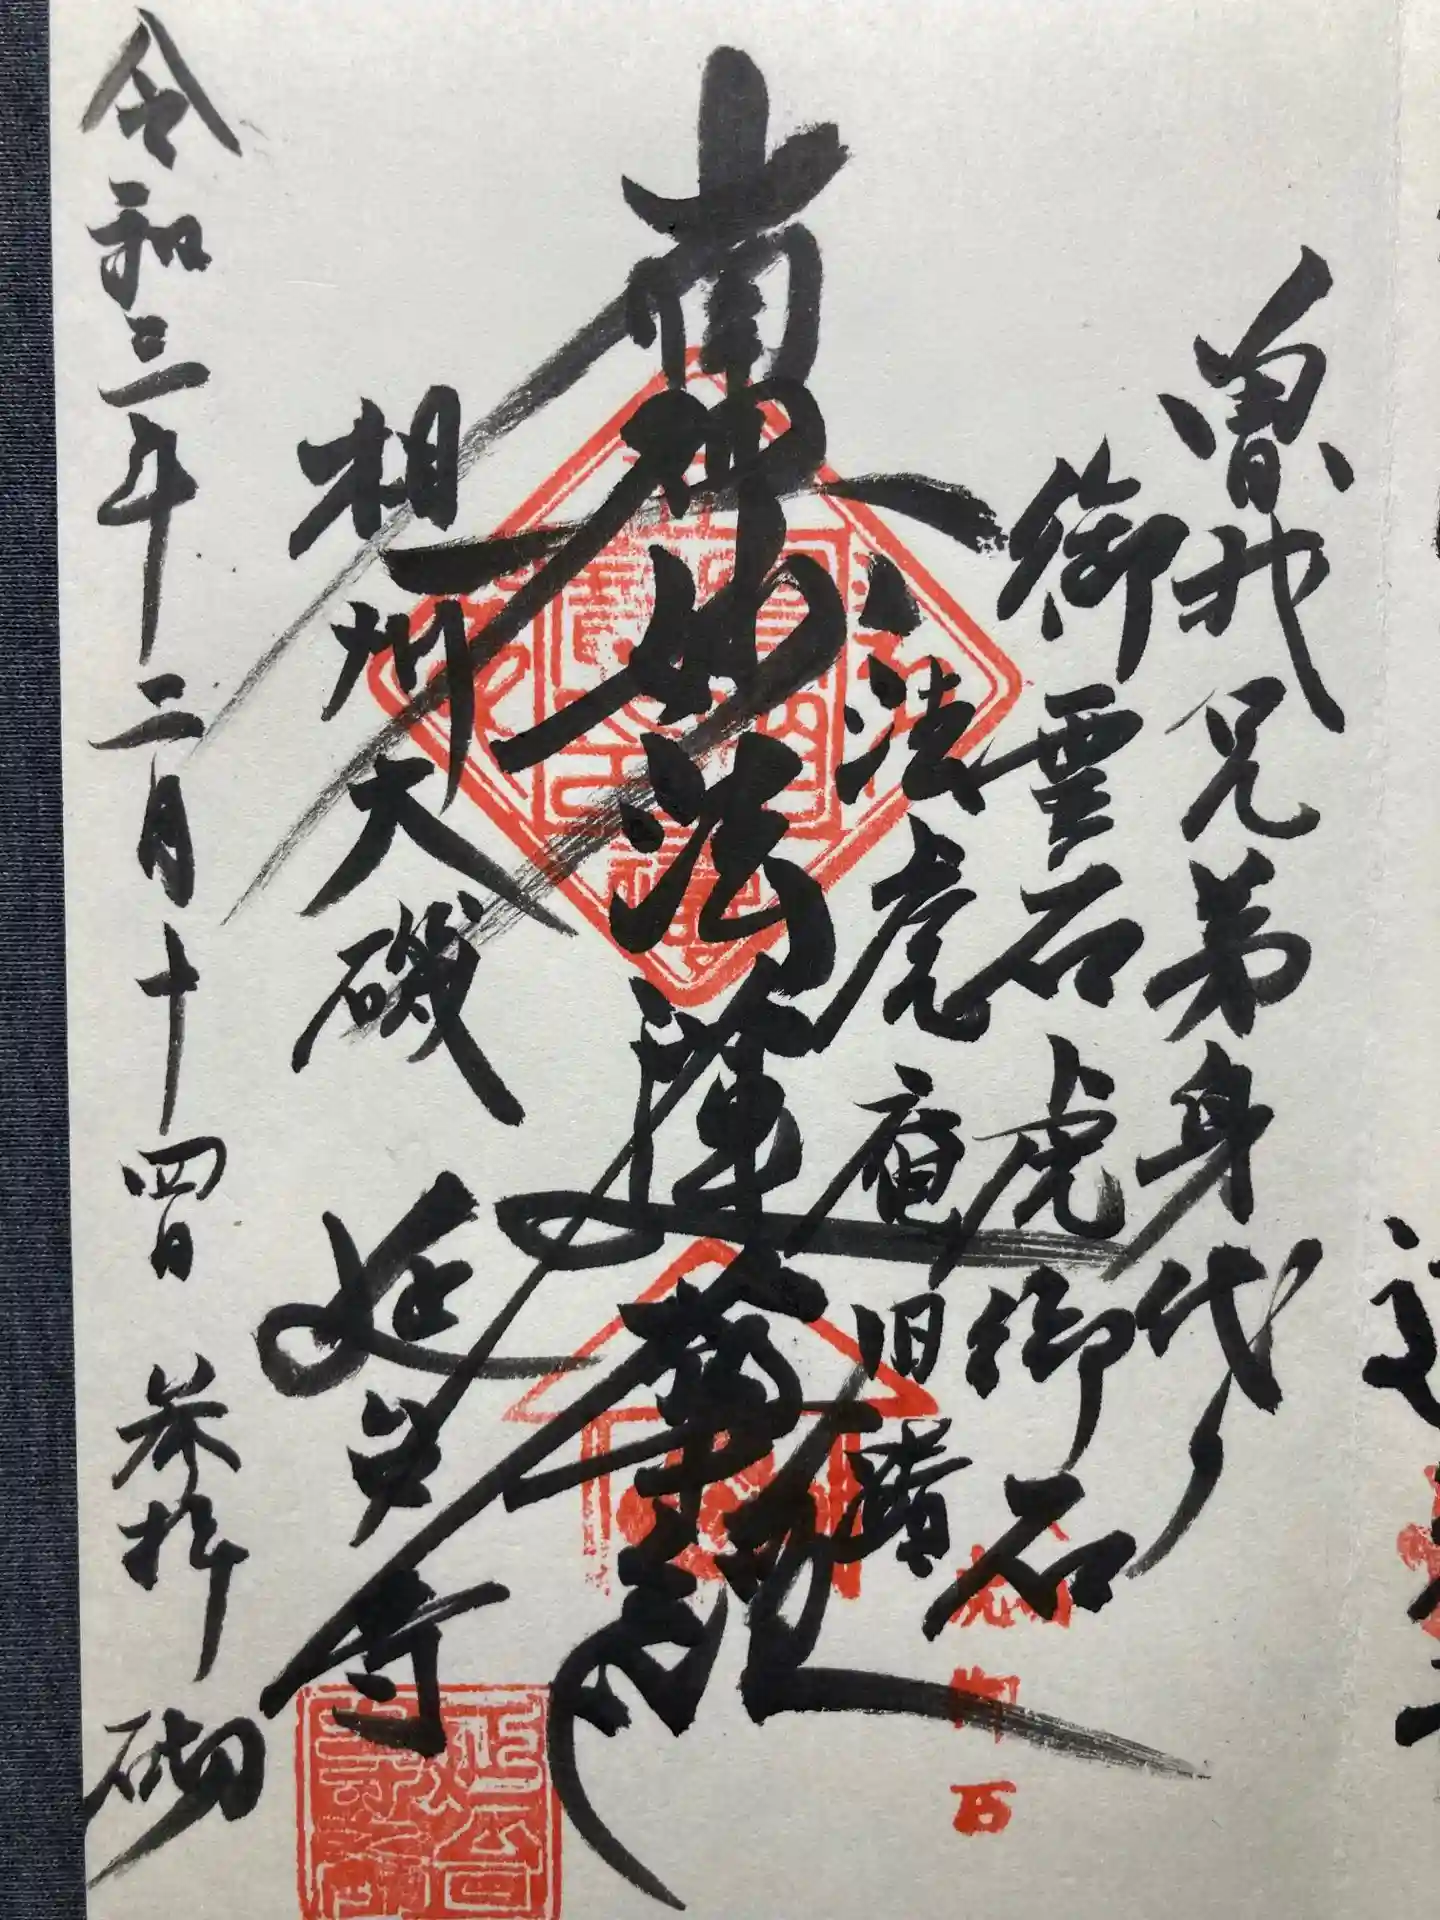 曽我兄弟身代り
御霊石虎御石
法虎庵旧蹟
南無妙法蓮華経
相州大磯
延台寺
令和三年二月十四日 参拝 砌
虎御石